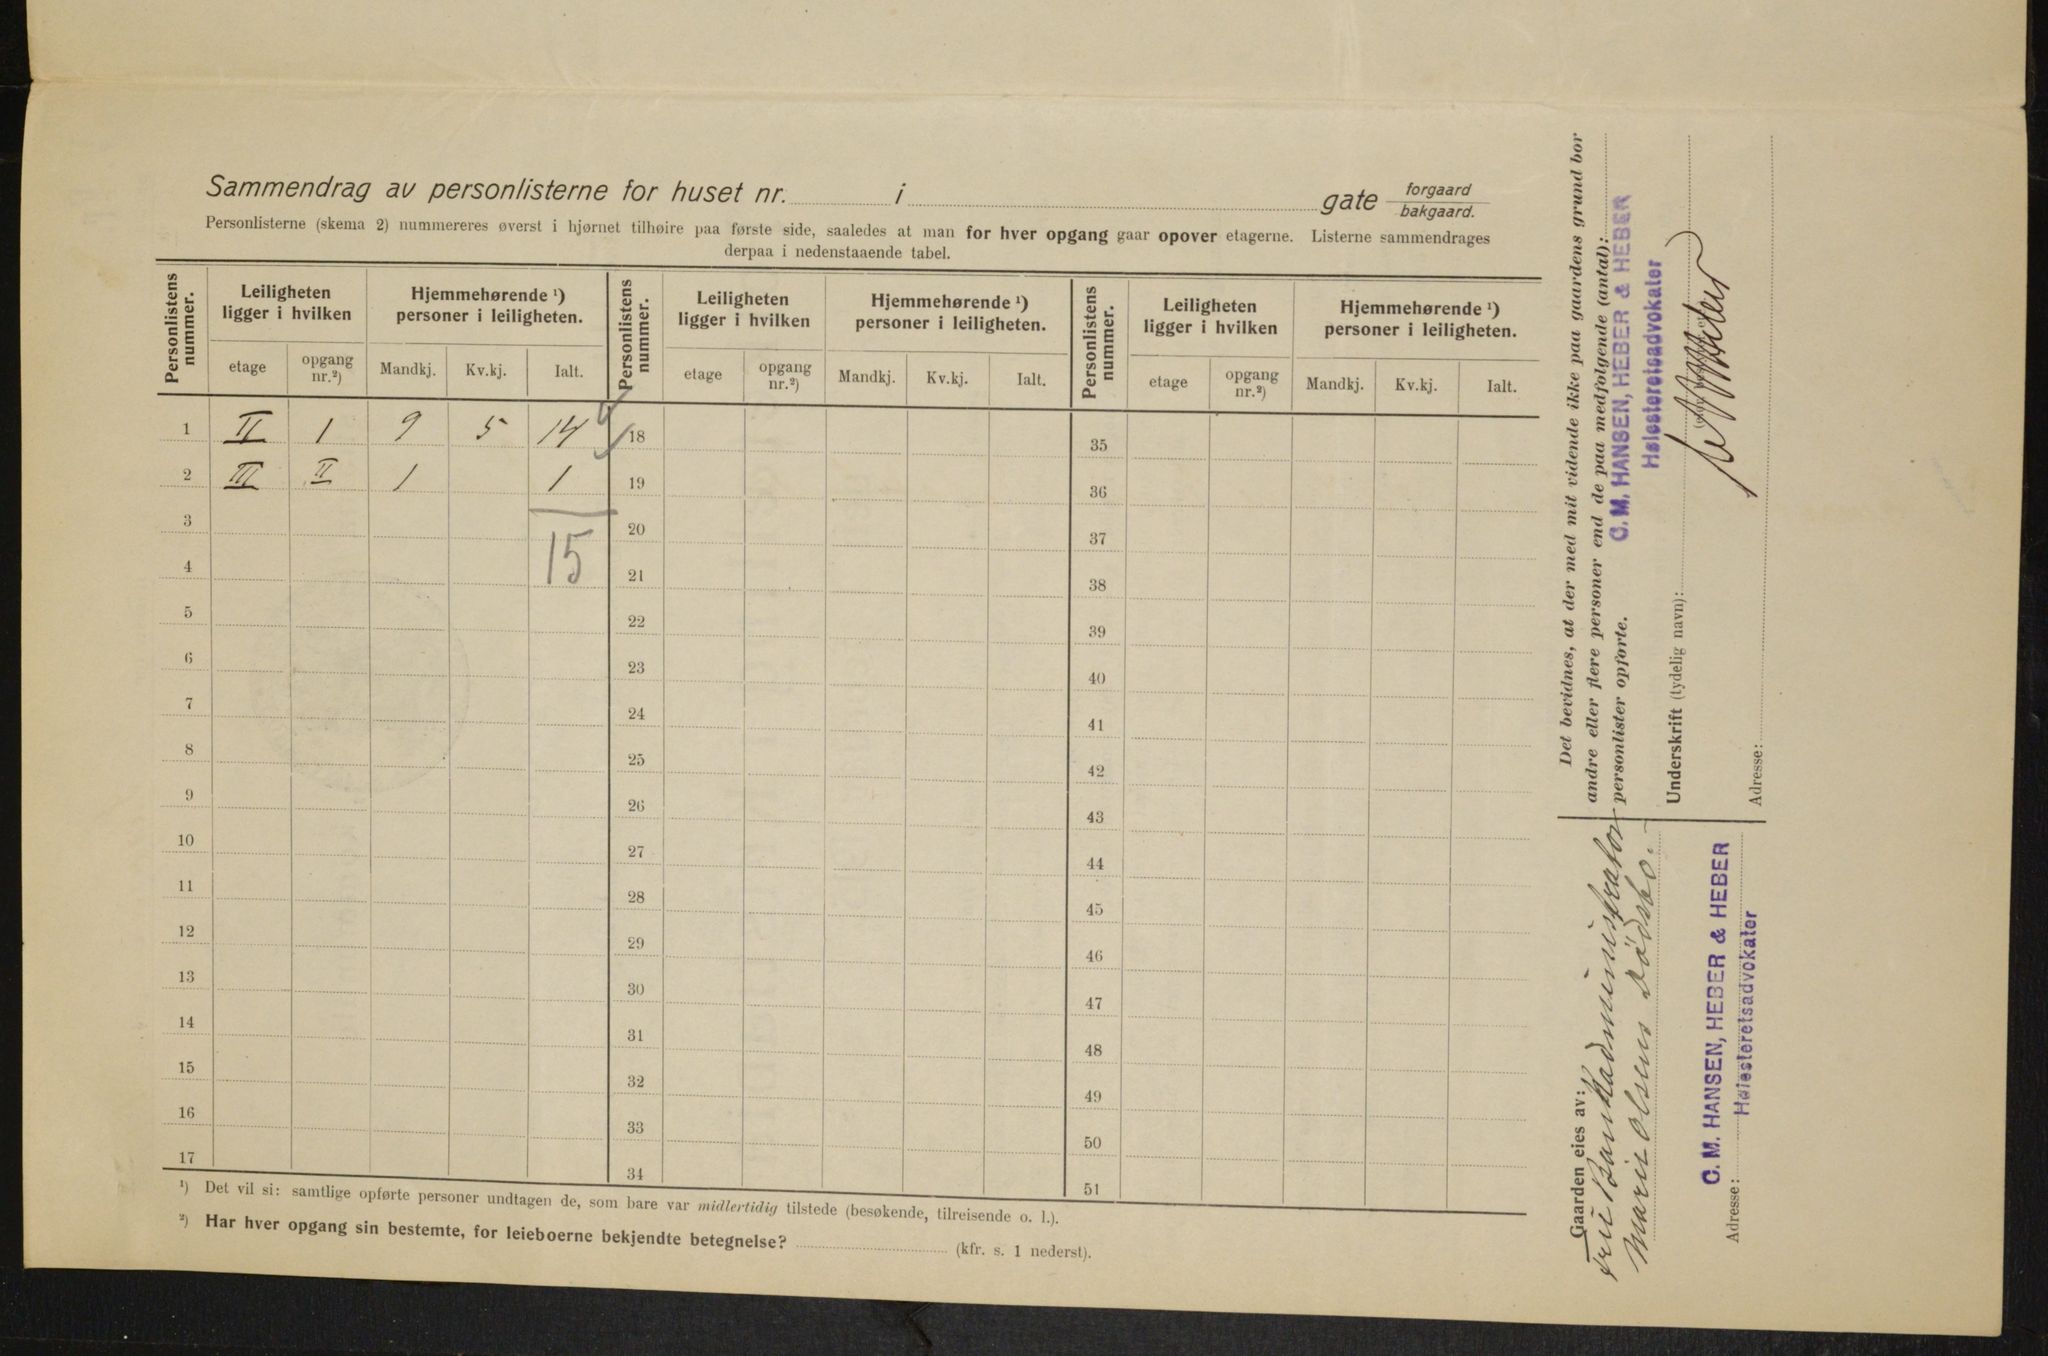 Sammendrag av personlisterne for huset nr. i gate forgaard bakgaard.
Personlisterne (skema 2) nummereres øverst i hjørnet tilhøire paa første side, saaledes at man for hver opgang gaar opover etagerne. Listerne sammendrages
derpaa i nedenstaaende tabel.
Personlistens nummer. Leiligheten ligger i hvilken Hjemmehørende ¹) personer i leiligheten. Personlistens nummer. Leiligheten ligger i hvilken Hjemmehørende ¹) personer i leiligheten. Personlistens nummer. Leiligheten ligger i hvilken Hjemmehørende ¹) personer i leiligheten.
etage opgang nr.²) Mandkj. Kv.kj. Ialt. etage opgang nr.²) Mandkj. Kv.kj. Ialt. etage opgang nr.²) Mandkj. Kv.kj. Ialt.
1 II 1 9 5 14 18 35
2 III II 1 1 19 36
3 15 20 37
4 21 38
5 22 39
6 23 40
7 24 41
8 25 42
9 26 43
10 27 44
11 28 45
12 29 46
13 30 47
14 31 48
15 32 49
16 33 50
17 34 51
¹) Det vil si: samtlige opførte personer undtagen de, som bare var midlertidig tilstede (besøkende, tilreisende o. l.).
²) Har hver opgang sin bestemte, for leieboerne bekjendte betegnelse? (kfr. s. 1 nederst).
Det bevidnes, at der med mit vidende ikke paa gaardens grund bor
andre eller flere personer end de paa medfølgende (antal):
personlister opførte.
C. M. HANSEN, HEBER & HEBER
Høiesteretsadvokater
Underskrift (tydelig navn):
Adresse:
Gaarden eies av:
Marie Olsens dödsbo.
C. M. HANSEN, HEBER & HEBER
Adresse:
Høiesteretsadvokater